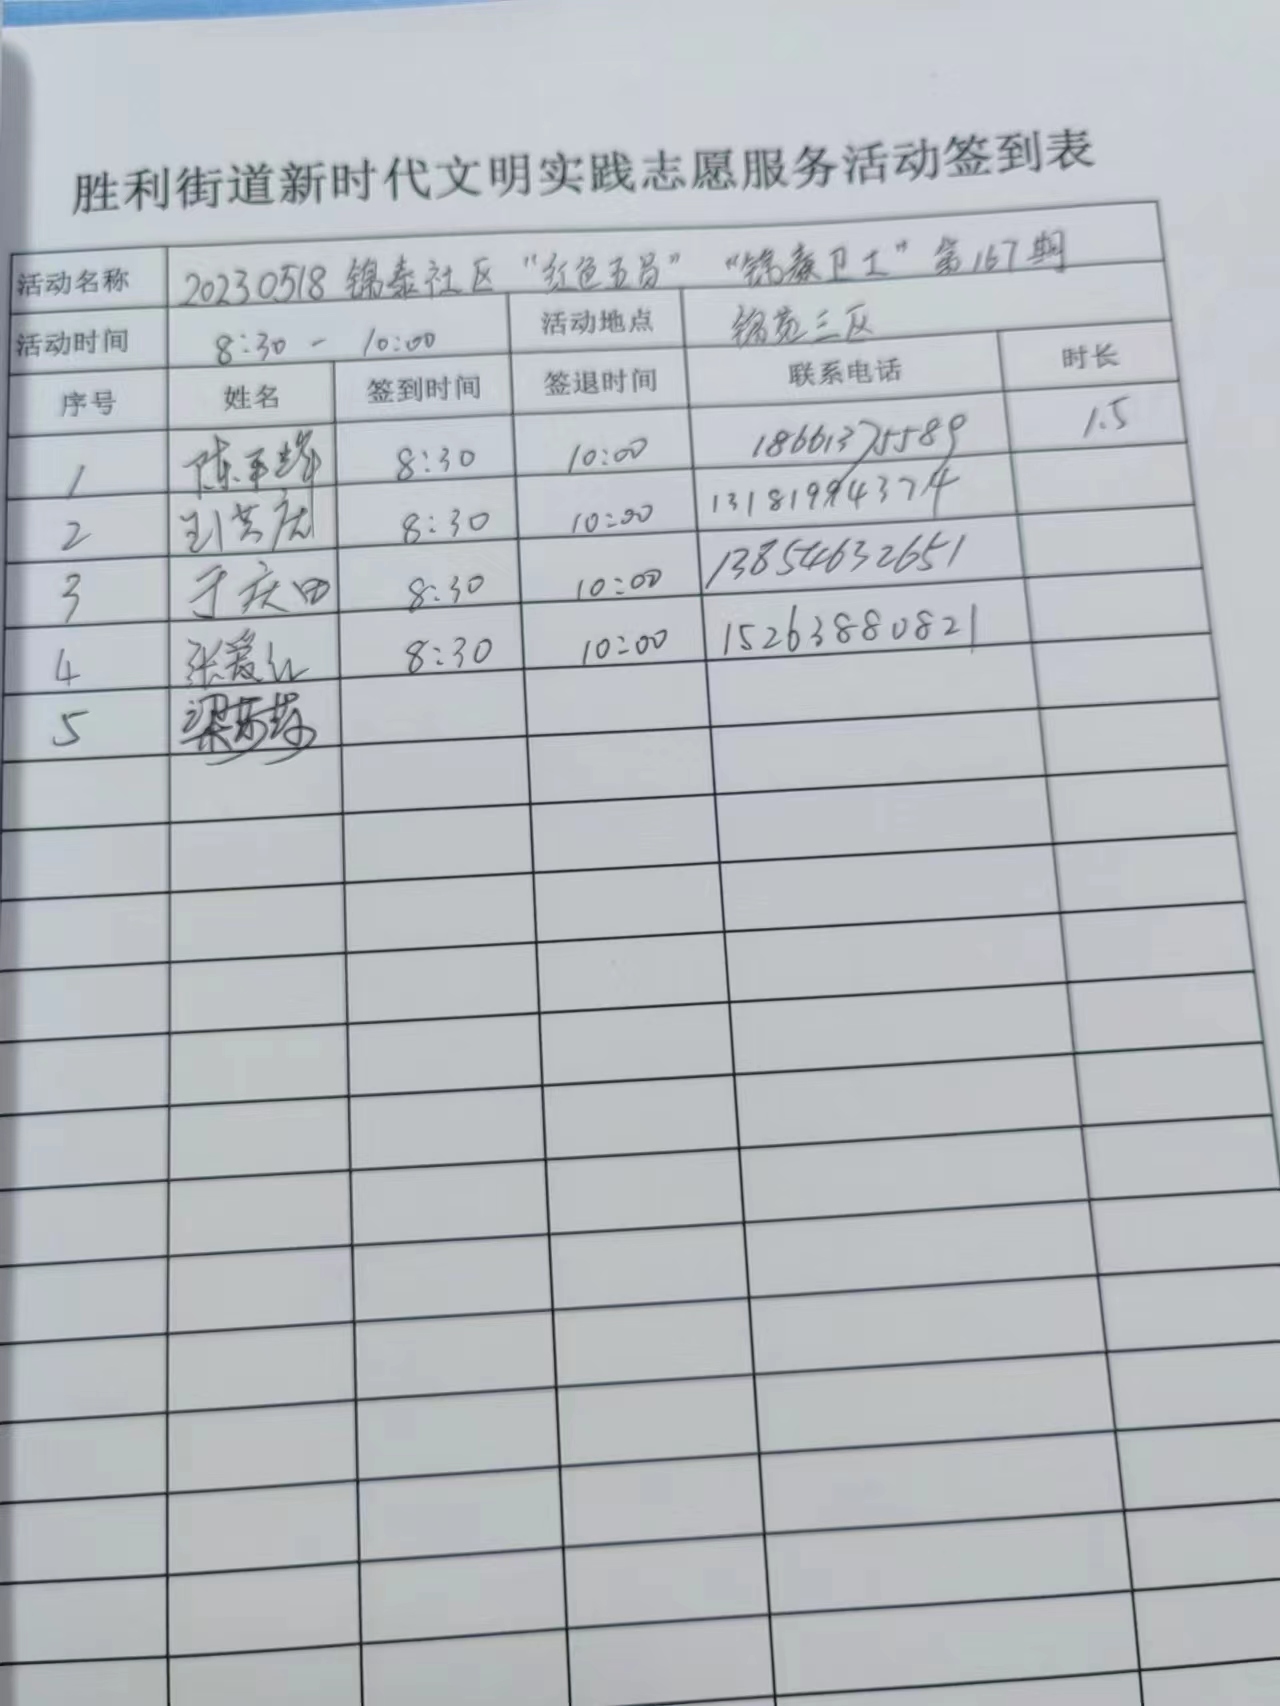 胜利街道新时代文明实践志愿服务活动签到表
活动名称 20230518 锦泰社区 “红色五员” “锦泰卫士” 第167期
活动时间 8:30 - 10:00 活动地点 锦苑三区
序号 姓名 签到时间 签退时间 联系电话 时长
1 陈 8:30 10:00 18661375589 1.5
2 8:30 10:00 13181994374
3 于庆田 8:30 10:00 13854632651
4 张爱红 8:30 10:00 15263880821
5 梁莎莎